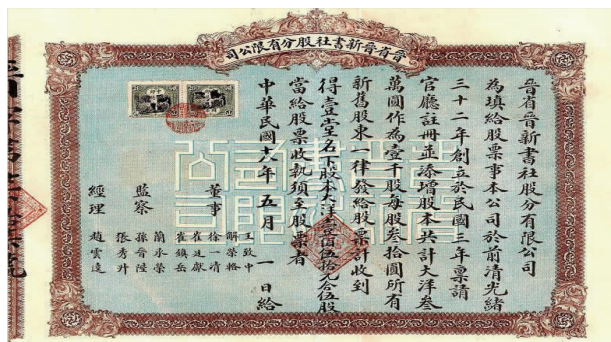 晉省晉新書社股分有限公司
晉省晉新書社股分有限公司
為填給股票事本公司於前清光緒
三十二年創立於民國三年稟請
官廳註冊並添增股本共計大洋叁
萬圓作為壹千股每股叁拾圓所有
新舊股東一律發給股票計收到
得壹堂名下股本大洋壹佰伍拾元合伍股
當給股票收執須至股票者
中華民國十八年五月一日給
董事
王致中
解榮輅
徐一清
崔廷獻
崔鎮岳
監察
蘭承榮
孫晉陞
張秀升
經理
趙雲逵